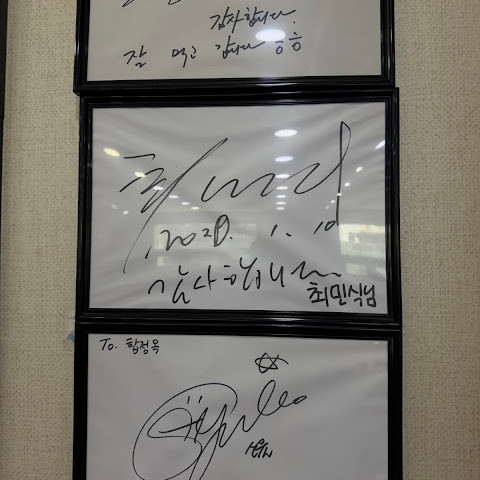 감사합니다.
잘 먹고 갑니다 ㅎㅎ
2020. 1. 10
감사합니다
최민식님
To. 합정옥